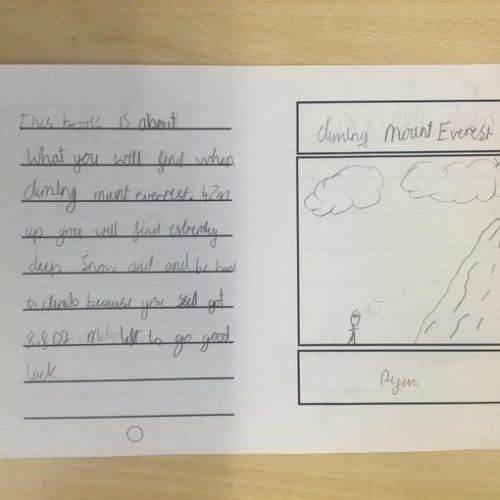 This book is about
What you will find when
climing mount everest. 42m
up you will find extremly
deep Snow and and be
to climb because you still got
8.802 left to go good
luck
climing mount Everest